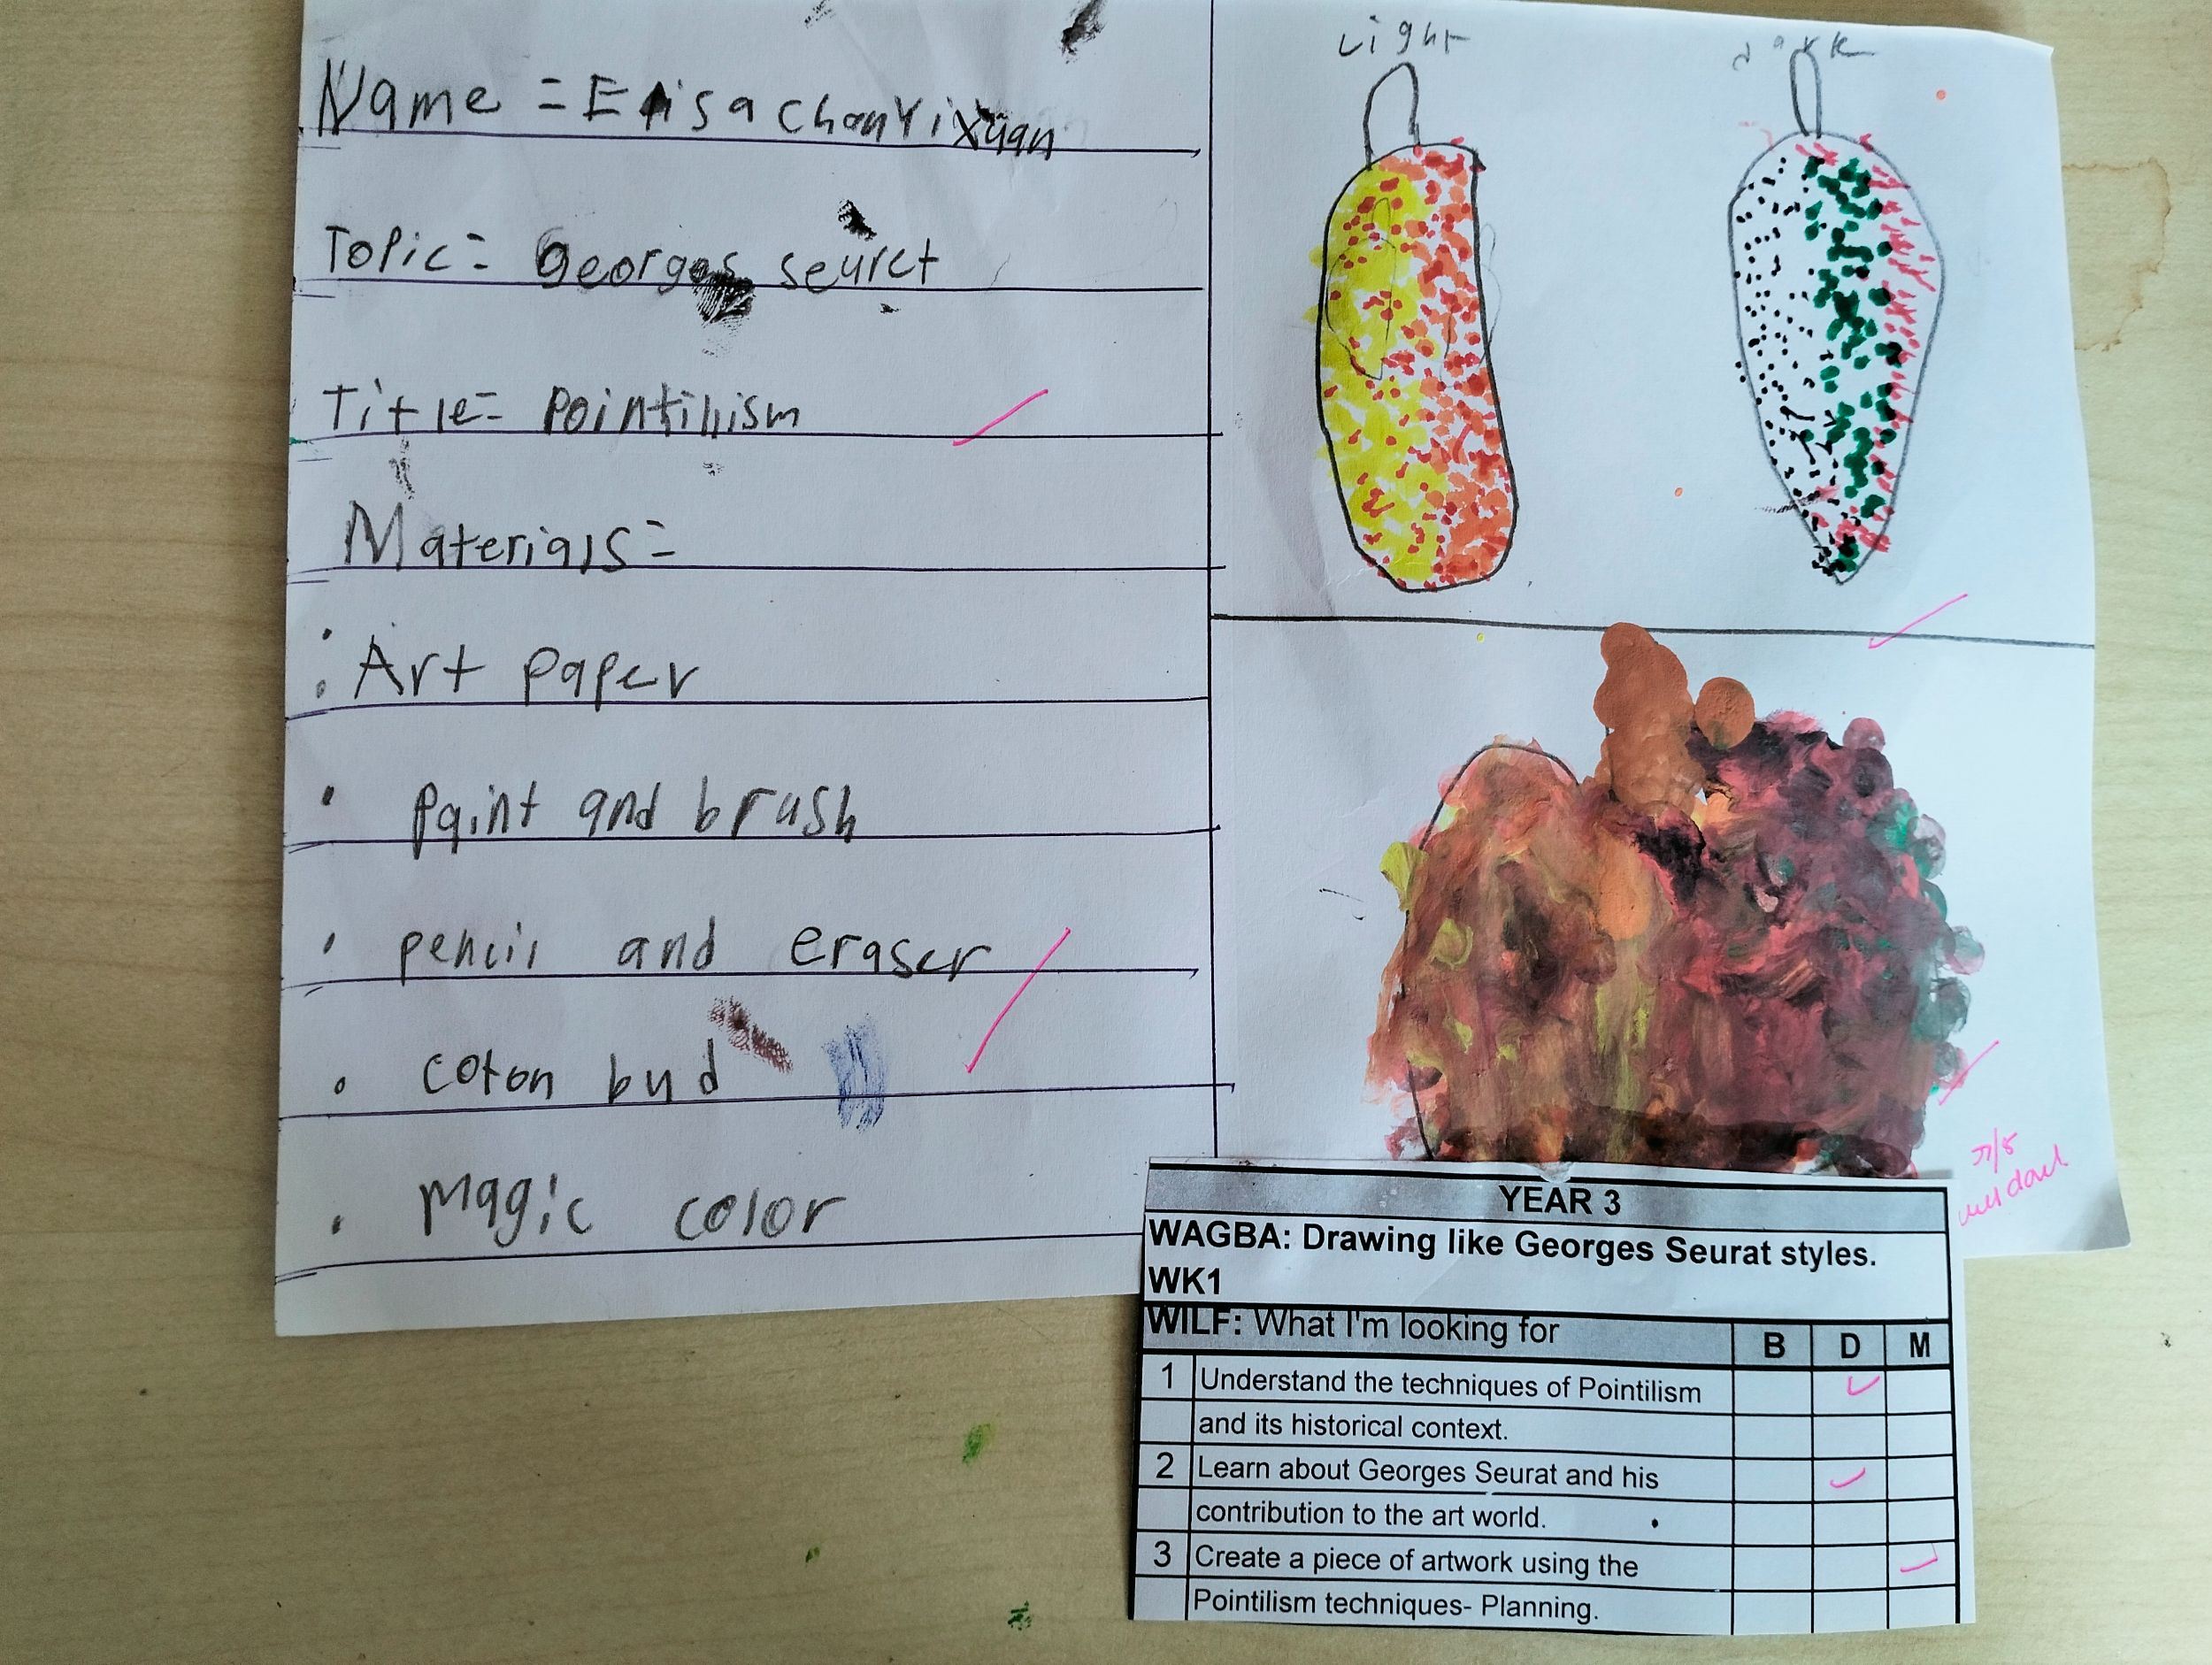 Name = Elisa Chan Yi Xuan
Topic = Georges seurct
Title = Pointillism
Materials =
• Art paper
• paint and brush
• pencil and eraser
• coton bud
• Magic color
Light
dark
well done
YEAR 3
WAGBA: Drawing like Georges Seurat styles.
WK1
WILF: What I'm looking for B D M
1 Understand the techniques of Pointilism
and its historical context.
2 Learn about Georges Seurat and his
contribution to the art world.
3 Create a piece of artwork using the
Pointilism techniques- Planning.